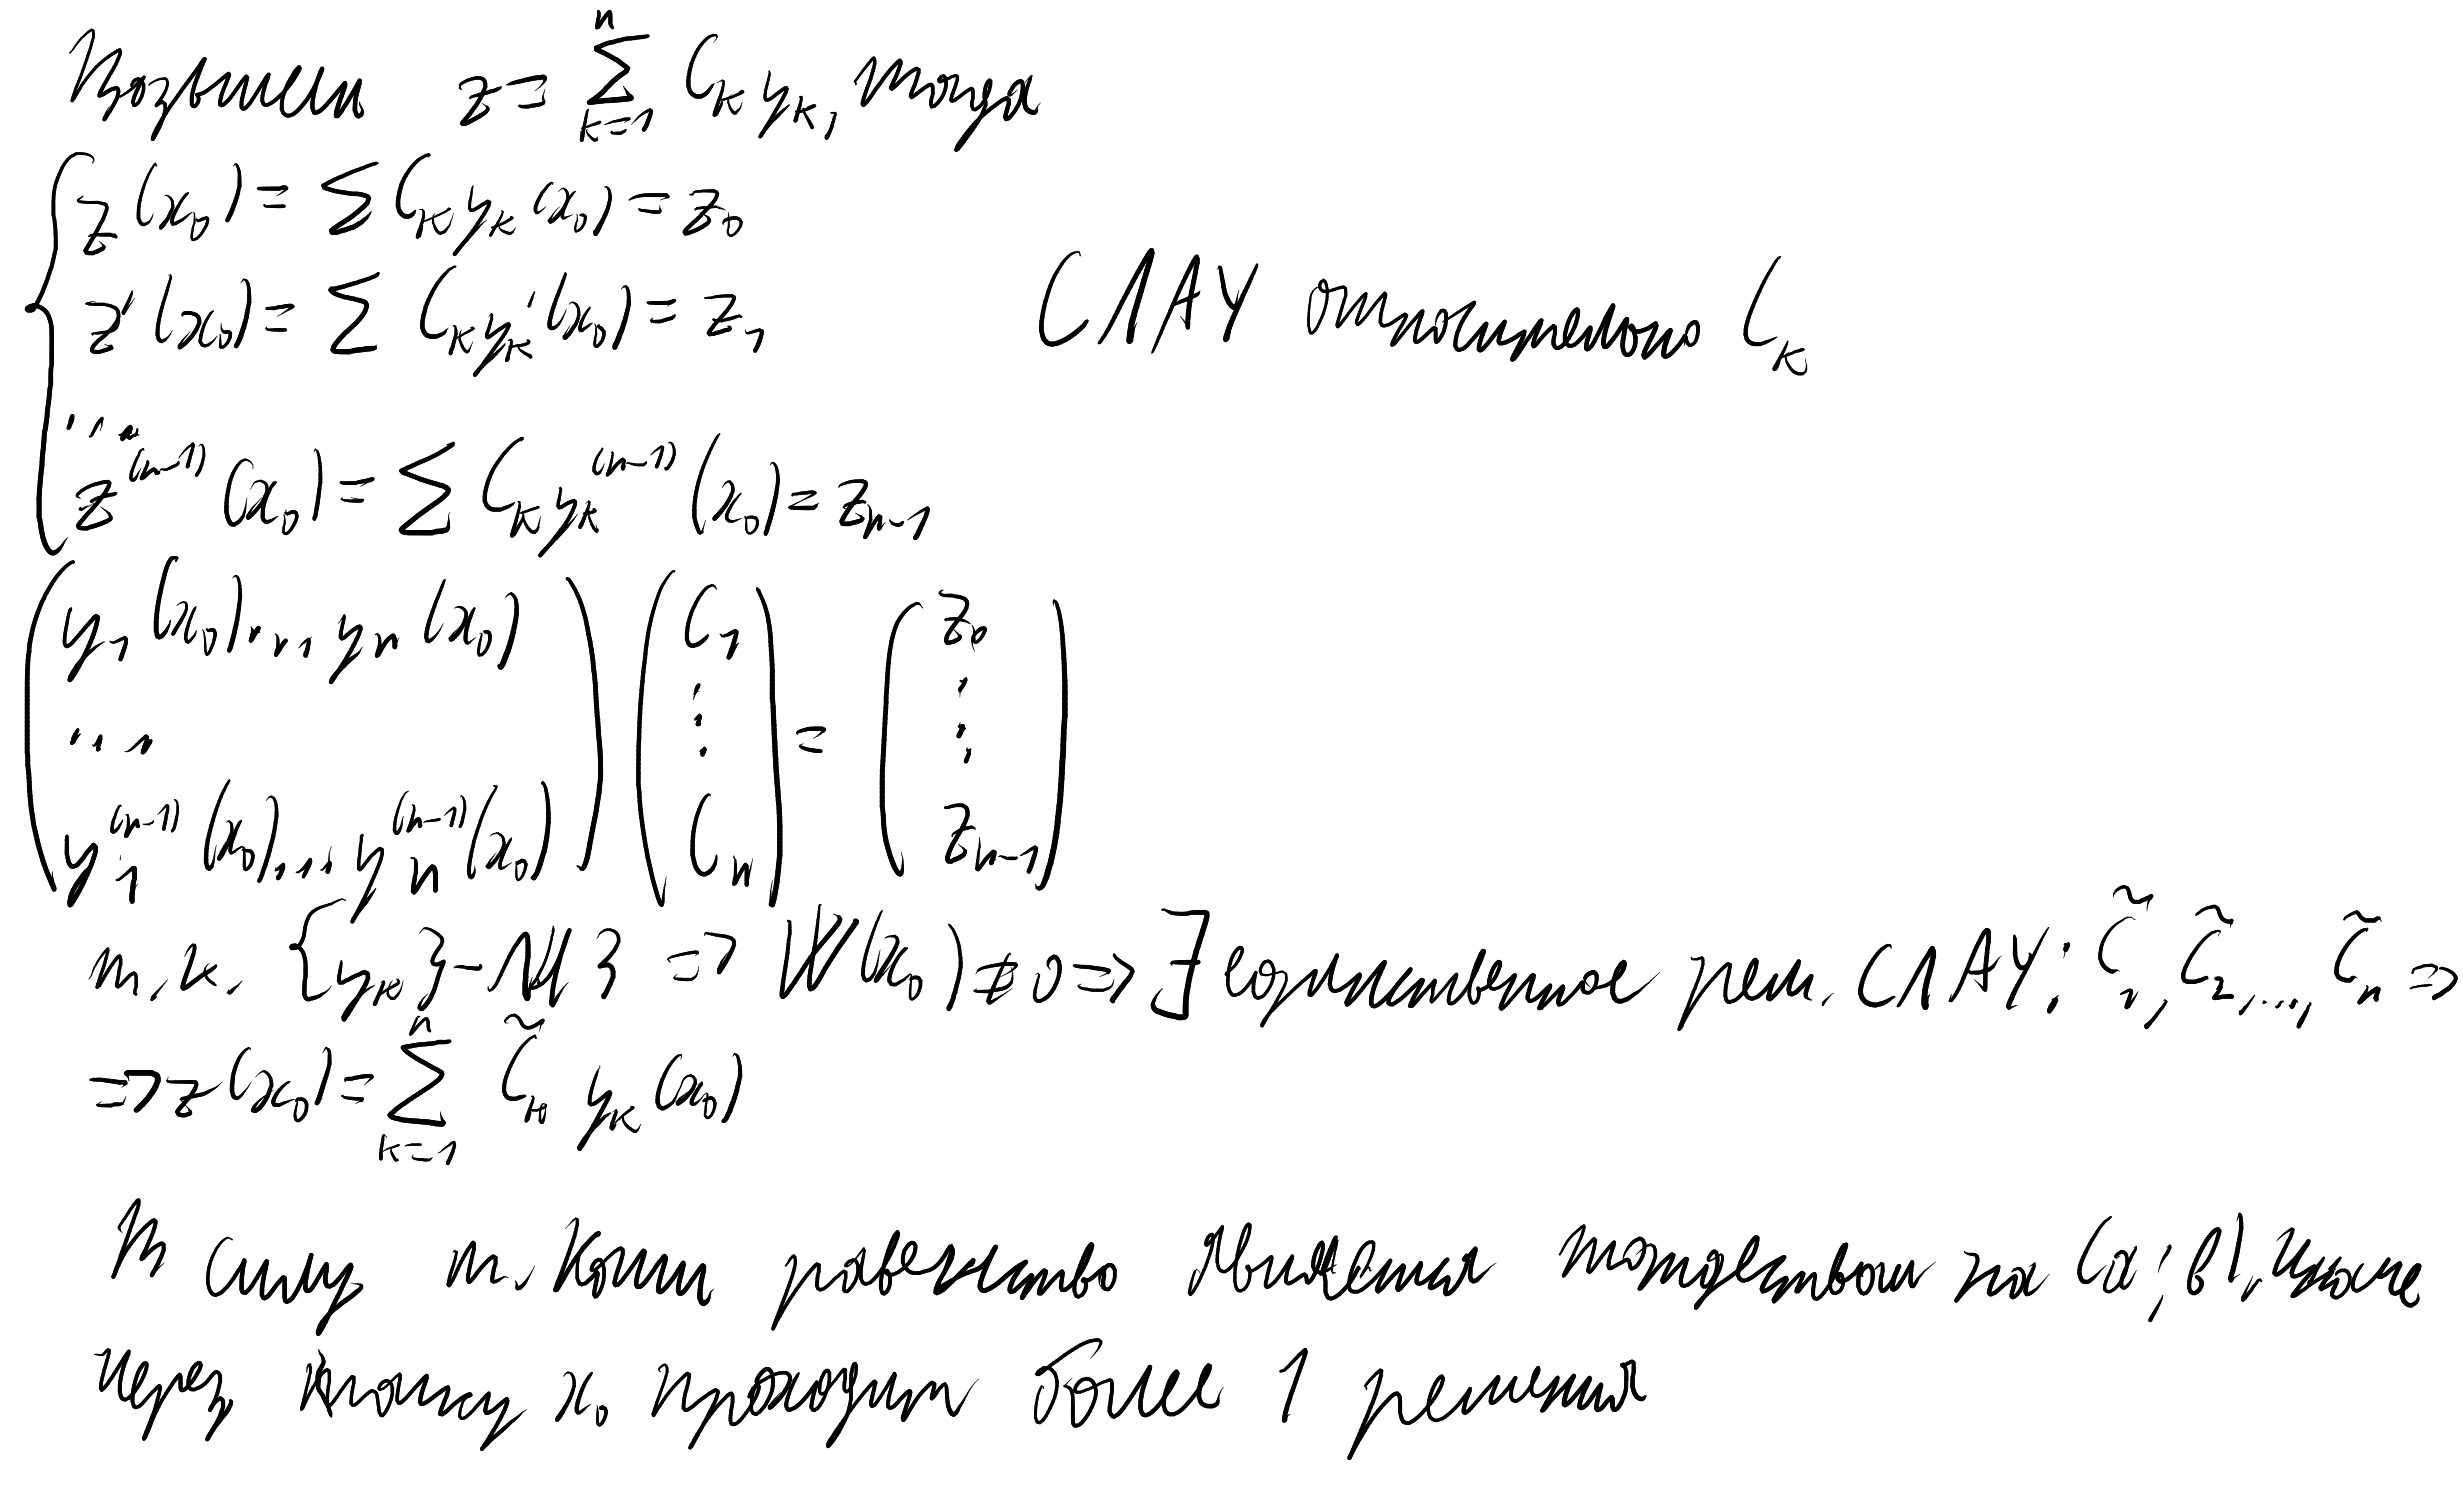 Положим z = \sum_{k=1}^{n} C_k y_k, тогда
z(x_0) = \sum C_k y_k(x_0) = z_0
z'(x_0) = \sum C_k y_k'(x_0) = z_1 СЛАУ относительно C_k
...
z^{(n-1)}(x_0) = \sum C_k y_k^{(n-1)}(x_0) = z_{n-1}
( y_1(x_0), ..., y_n(x_0) ) ( C_1 ) ( z_0 )
... ⋮ = ⋮
y_1^{(n-1)}(x_0), ..., y_n^{(n-1)}(x_0) C_n z_{n-1}
т.к. {y_k} - ЛНЗ => W(x_0) ≠ 0 => ∃ единственное реш. СЛАУ: \tilde{C}_1, \tilde{C}_2, ..., \tilde{C}_n =>
=> z(x_0) = \sum_{k=1}^{n} \tilde{C}_k y_k(x_0)
В силу т. Коши равенство является тождеством на (a; b), иначе
через точку x_0 проходит более 1 решения